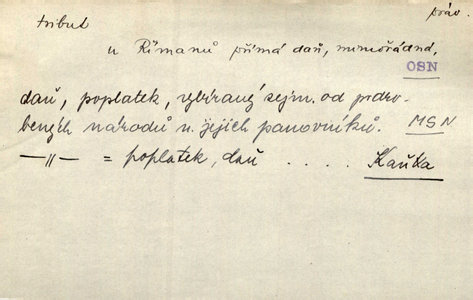 tribut práv.
u Římanů přímá daň, mimořádná,
OSN
daň, poplatek, vybíraný zejm. od podro-
bených národů n. jejich panovníků. MSN
—〃— = poplatek, daň . . . . Kaňka